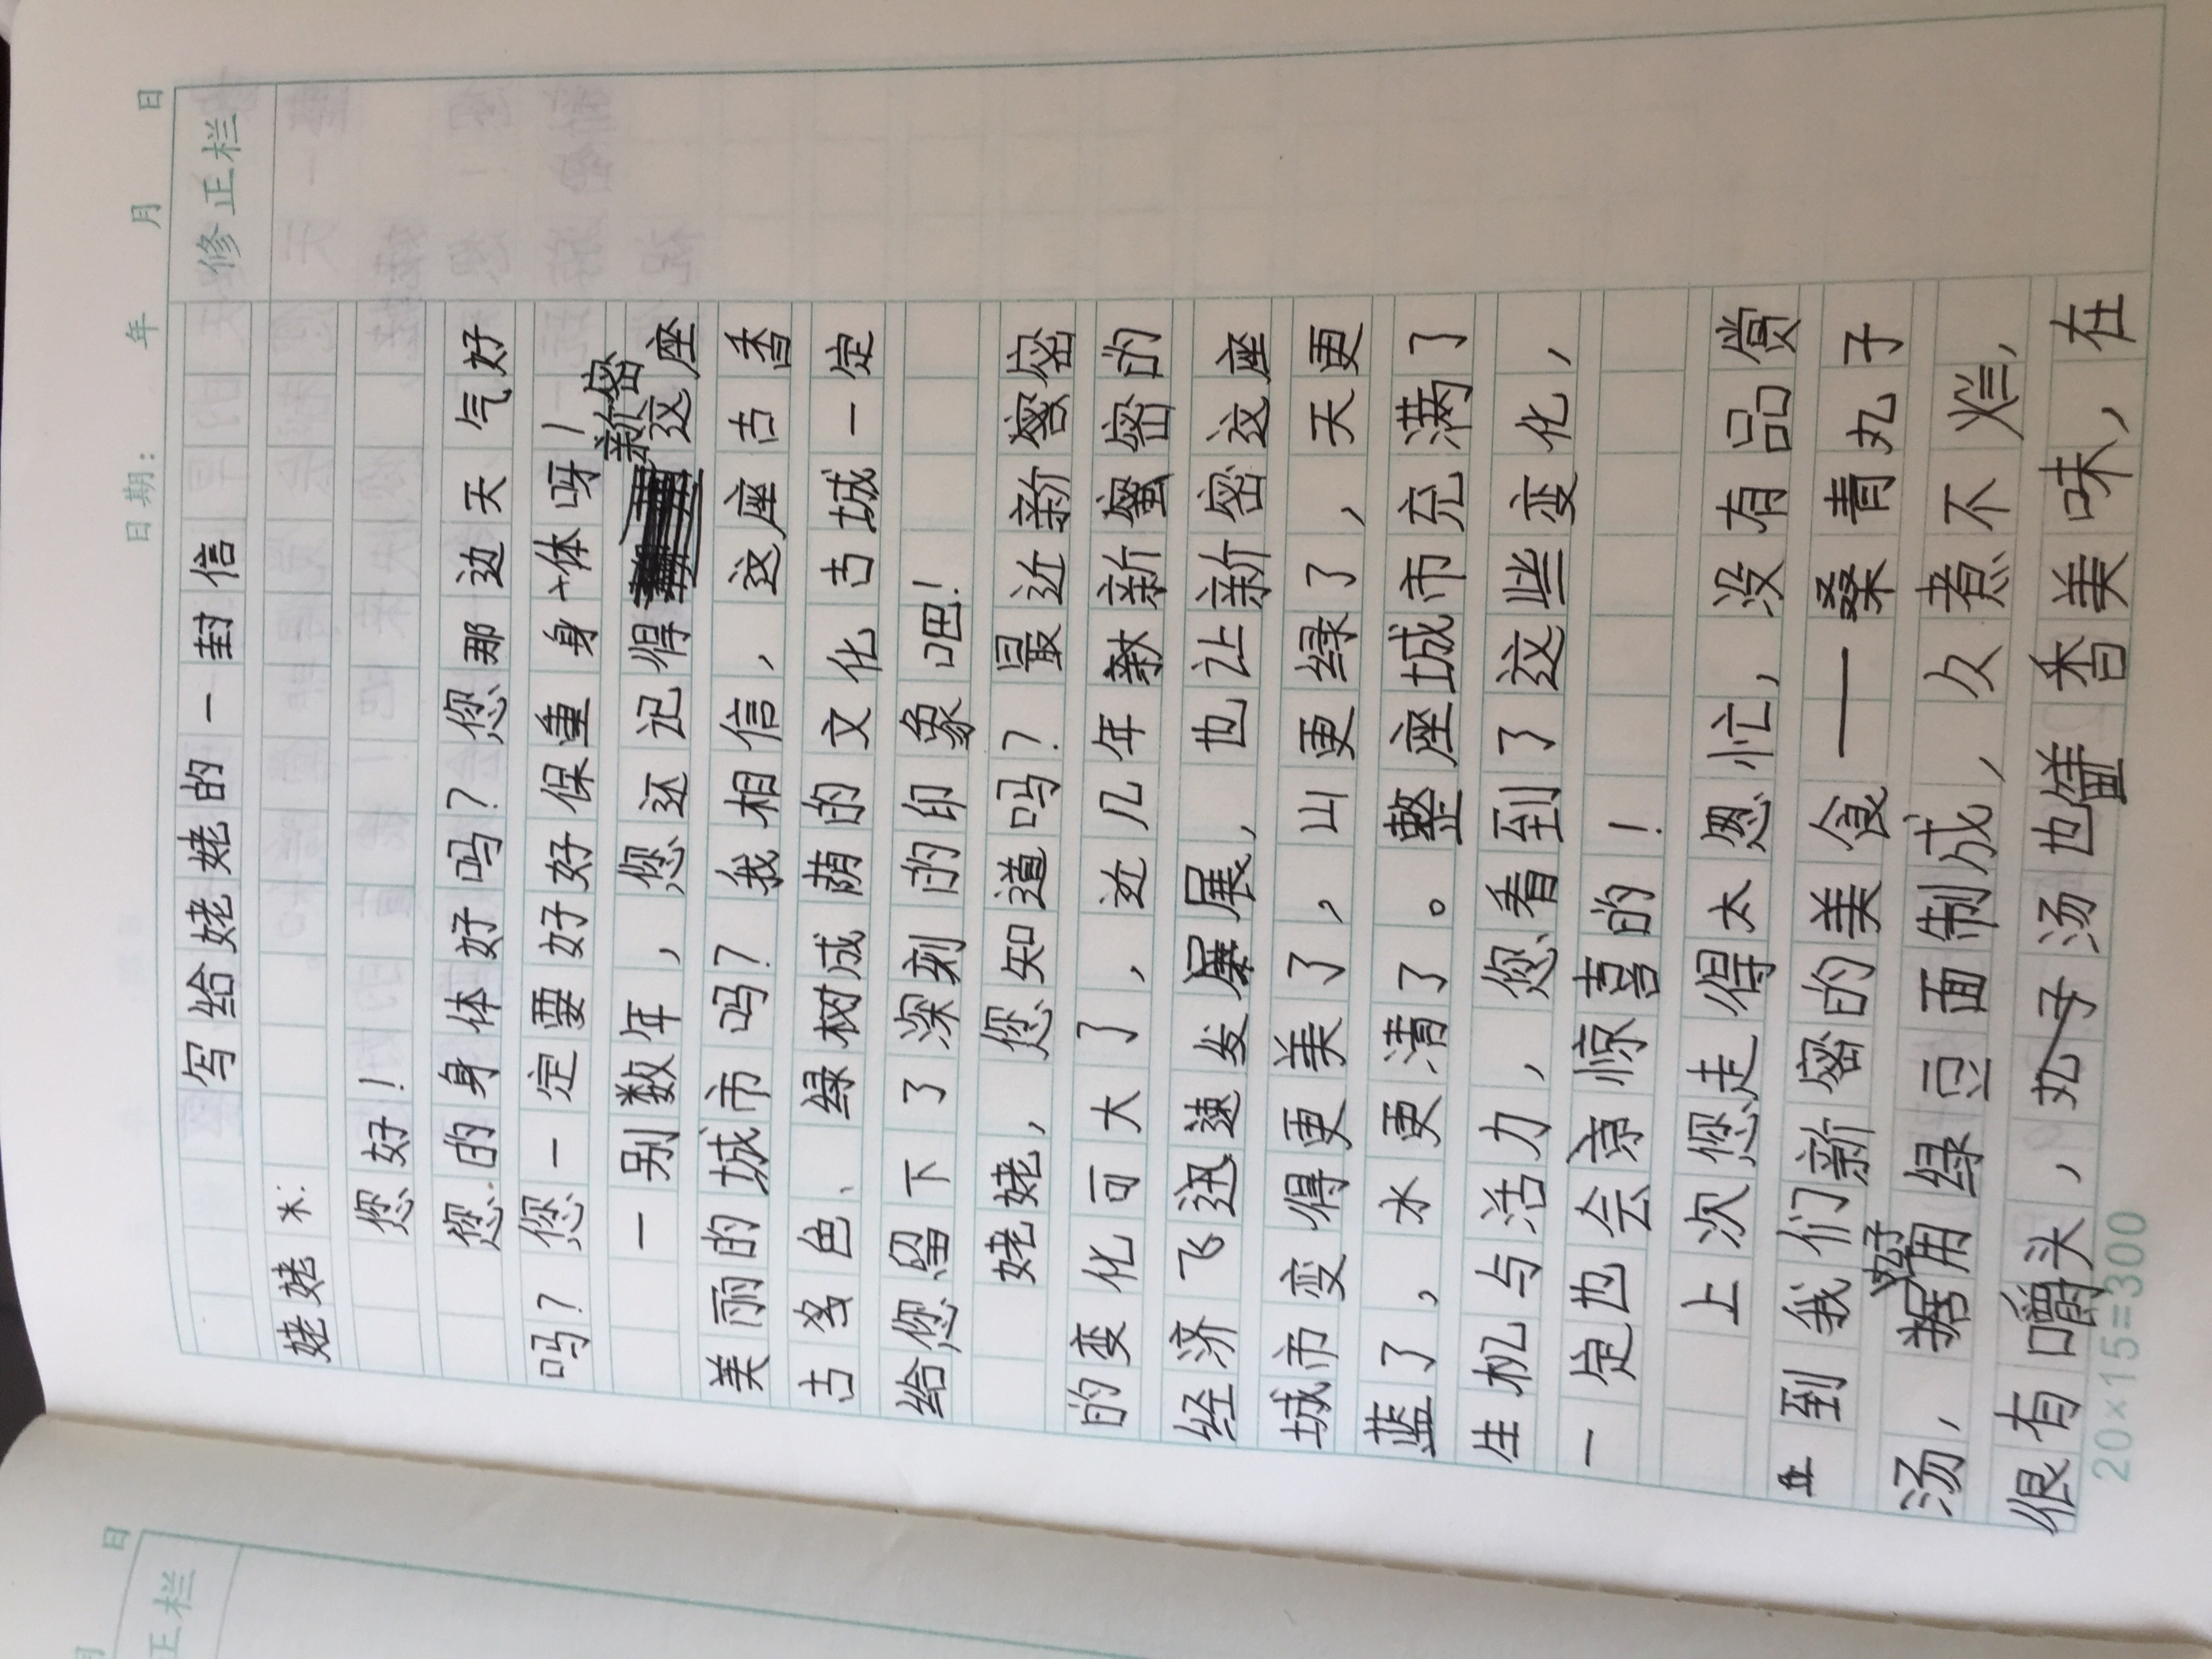 日期: 年 月 日
修正栏
写给姥姥的一封信
姥姥:
您好!
您的身体好吗?您那边天气好
吗?您一定要好好保重身体呀!
一别数年,您还记得新密这座
美丽的城市吗?我相信,这座古香
古多色、绿树成荫的文化古城一定
给您留下了深刻的印象吧!
姥姥,您知道吗?最近新密密
的变化可大了,近几年新新蜜密的
经济飞迅速发展展,也让新密这座
城市变得更美了,山更绿了,天更
蓝了,水更清了。整座城市充满了
生机与活力,您看到了这些变化,
一定也会亲惊喜的!
上次您走得太匆忙,没有品赏
到我们新密的美食——桑青丸子
汤,好用绿豆面制成,久煮不烂,
很有嚼头,丸子汤也鲜香美味,在
20×15=300
日
正栏